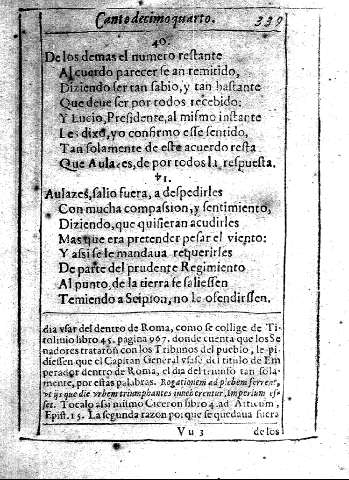 Canto decimoquarto. 339
40.
De los demas el numero restante
Al cuerdo parecer se an remitido,
Diziendo ser tan sabio, y tan bastante
Que deve ser por todos recebido:
Y Lucio, Presidente, al mismo instante
Les dixo, yo confirmo esse sentido,
Tan solamente de este acuerdo resta
Que Aulazes, de por todos la respuesta.
41.
Aulazes, salio fuera, a despedirles
Con mucha compassion, y sentimiento,
Diziendo, que quisieran acudirles
Mas que era pretender pesar el viento:
Y assi se le mandaua requerirles
De parte del prudente Regimiento
Al punto, de la tierra se saliessen
Temiendo a Scipion, no le ofendiessen.
dia vsar del dentro de Roma, como se collige de Ti-
tolinio libro 45. pagina 967. donde cuenta que los Se
nadores trataron con los Tribunos del pueblo, le pi-
diessen que el Capitan General vsasse del titulo de Em
perador dentro de Roma, el dia del triunfo tan sola-
mente, por estas palabras. Rogationem ad plebem ferrent,
vt ijs quo die vrbem triumphantes inueherentur, imperium es-
set. Tocalo assi mismo Ciceron libro 4. ad Atticum,
Epist. 15. La segunda razon porque se quedaua fuera
V u 3 de los